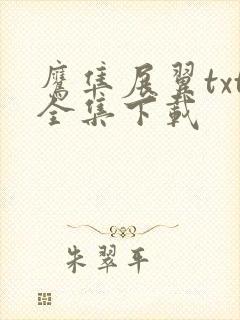 鹰隼展翼txt
全集下载
朱翠平